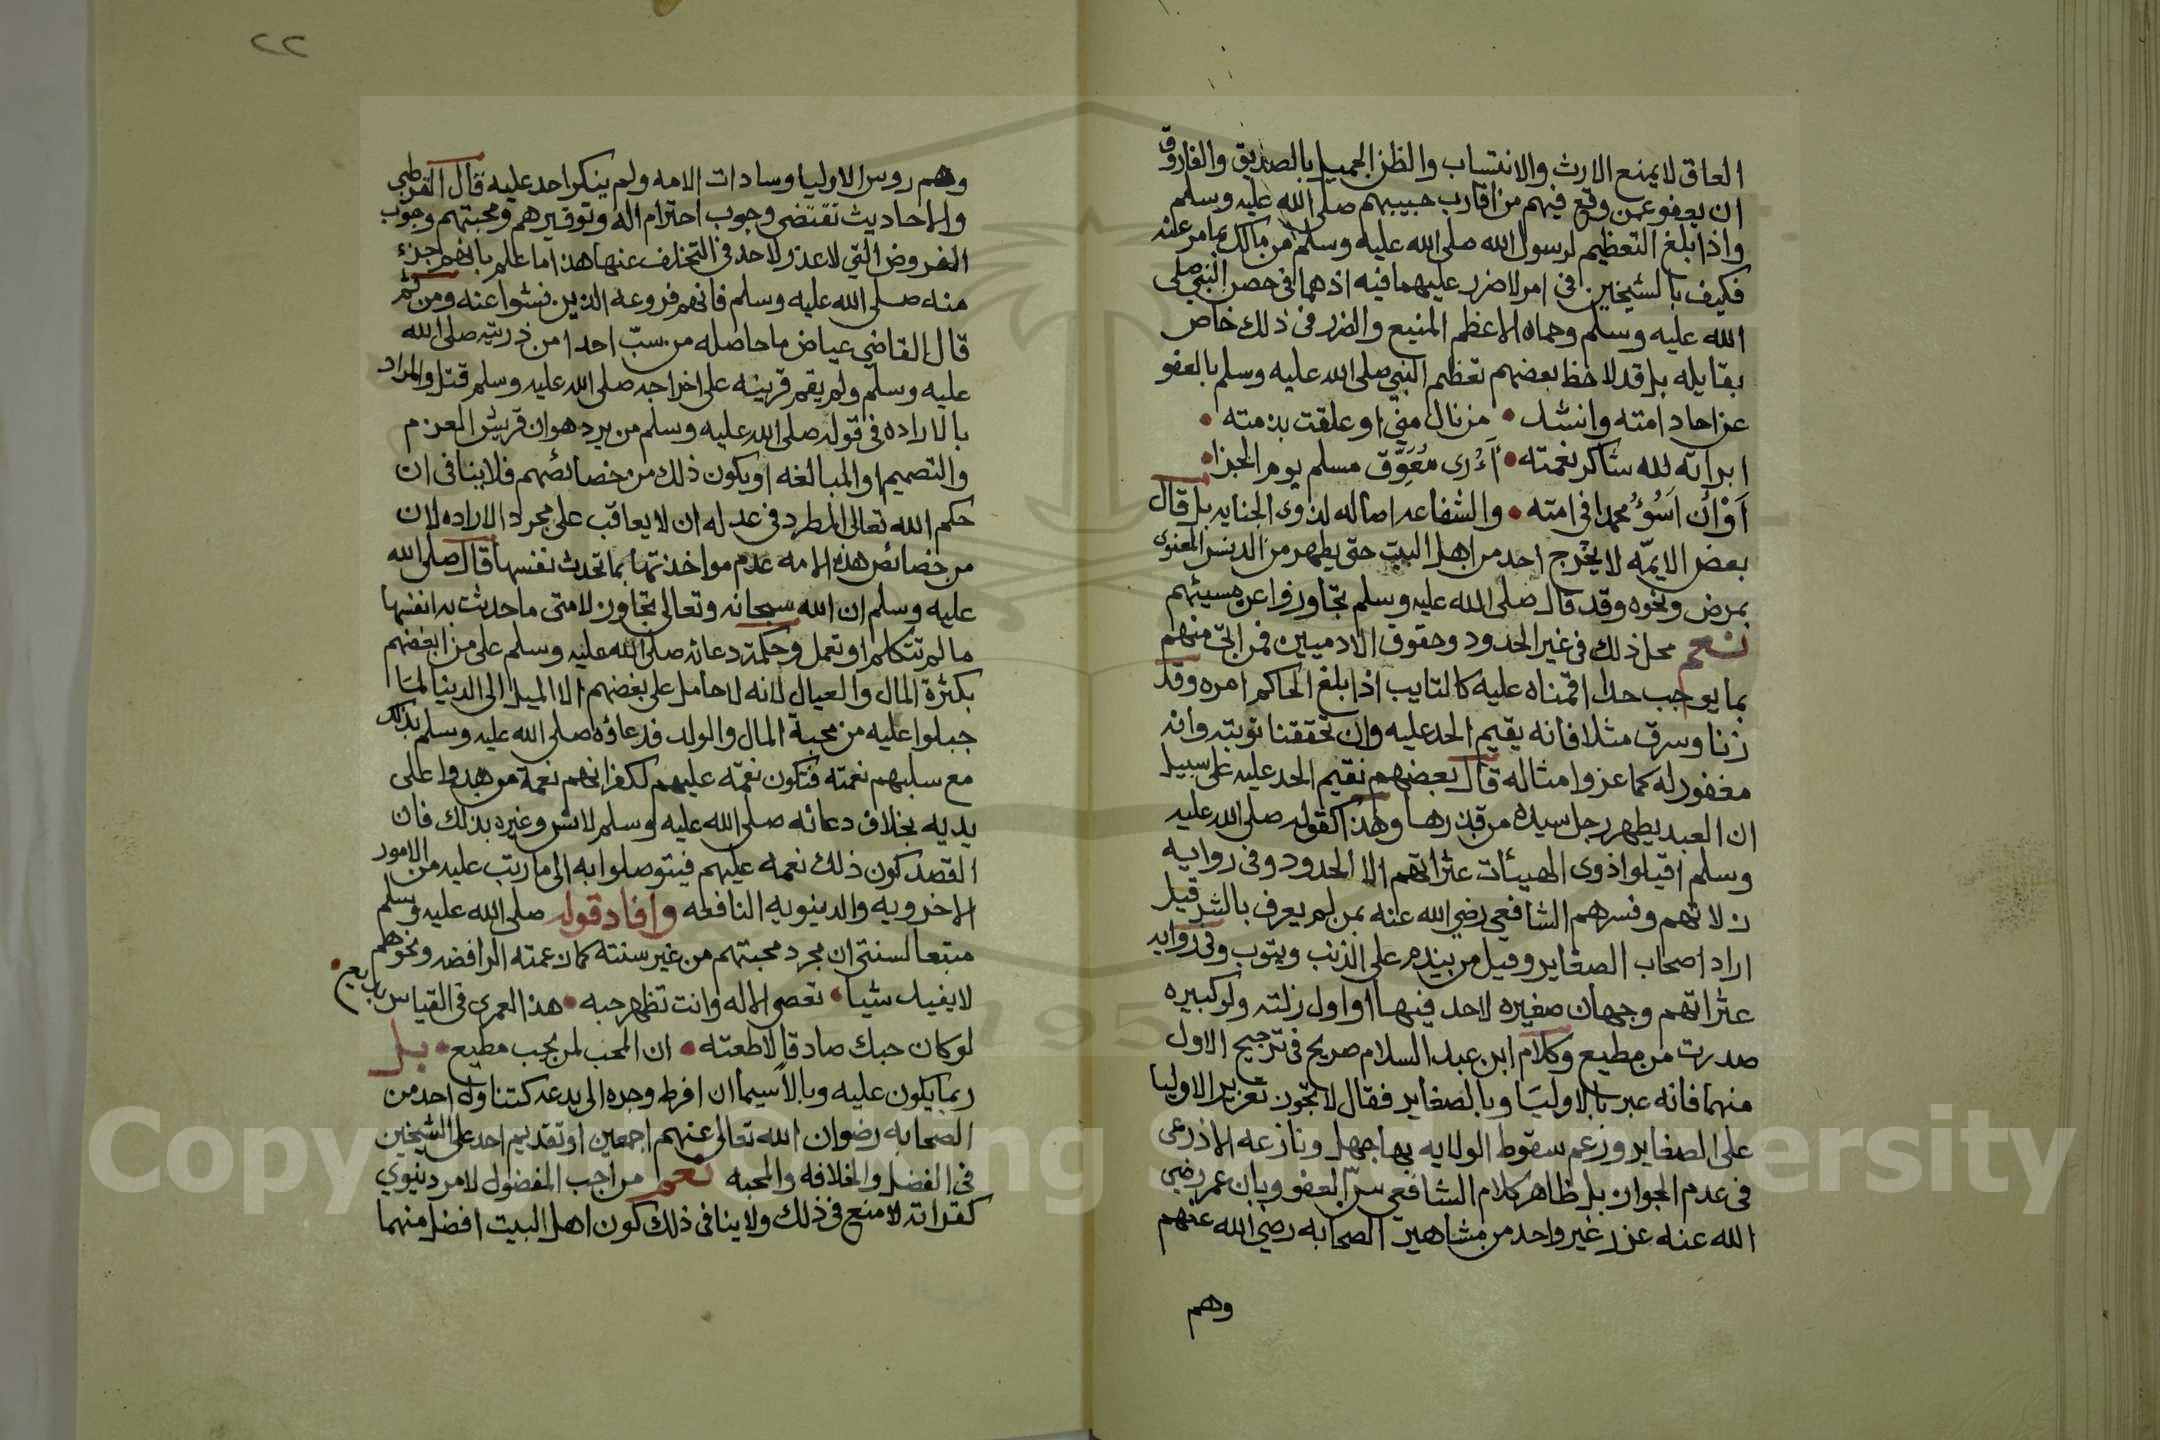 العاق لا يمنع الارث والانتساب والظن الجميل بالصديق والفاروق
ان يعفو عمن وقع فيهم من اقارب حبيبهم صلى الله عليه وسلم
واذا بلغ التعظيم لرسول الله صلى الله عليه وسلم من مالك بما مر عنه
فكيف بالشيخين في امر لا ضرر عليهما فيه اذ هما في حصن النبي صلى
الله عليه وسلم وحماه الاعظم المنيع والضرر في ذلك خاص
بقايله بل قد لاحظ بعضهم تعظيم النبي صلى الله عليه وسلم بالعفو
عن احاد امته وانشد • من نال مني او علقت بذمته •
ابراته لله شاكر نعمته • أَأُرى مُعَوِّق مسلم يوم الجزا •
أوْ أن أسُوُ محمدا في امته • والشفاعه اصاله لذوي الجنايه بل قال
بعض الايمّه لا يخرج احد من اهل البيت حتى يطهر من الدنس المعنوى
بمرض ونحوه وقد قال صلى الله عليه وسلم تجاوزوا عن مسيئهم
نعم محل ذلك في غير الحدود وحقوق الادميين فمن اتى منهم
بما يوجب حدا اقمناه عليه كالتايب اذا بلغ الحاكم امره وقد
زنا وسرق مثلا فانه يقيم الحد عليه وان تحققنا توبته وانه
مغفور له كماعز وامثاله قال بعضهم نقيم الحد عليه على سبيل
ان العبد يطهر رجل سيده من قذرها وهذا كقوله صلى الله عليه
وسلم اقيلوا ذوى الهيئات عثراتهم الا الحدود وفى روايه
زلاتهم وفسرهم الشافعي رضي الله عنه بمن لم يعرف بالشر قيل
اراد اصحاب الصغاير وقيل من يندم على الذنب ويتوب وفى روايه
عثراتهم وجهان صغيره لاحد فيها او اول زلته ولو كبيره
صدرت من مطيع وكلام ابن عبد السلام صريح في ترجيح الاول
منهما فانه عبر بالاوليا وبالصغاير فقال لا تجوز تعزير الاوليا
على الصغاير وزعم سقوط الولايه بها جهل ونازعه الاذرعى
في عدم الجواز بل ظاهر كلام الشافعي سنّ العفو وبان عمر رضي
الله عنه عزر غير واحد من مشاهير الصحابه رضي الله عنهم
وهم
٢٢
وهم روس الاوليا وسادات الامه ولم ينكر احد عليه قال القرطبي
والاحاديث تقتضي وجوب احترام اله وتوقيرهم ومحبتهم وجوب
الفروض التي لا عذر لاحد في التخلف عنها هذا ما علم بانهم جزء
منه صلى الله عليه وسلم فانهم فروعه الذين نشوا عنه ومن ثم
قال القاضي عياض ما حاصله من سبّ احدا من ذريته صلى الله
عليه وسلم ولم يقم قرينه على اخراجه صلى الله عليه وسلم قتل والمراد
بالاراده في قوله صلى الله عليه وسلم من يرد هوان قريش العزم
والتصميم او المبالغه او يكون ذلك من خصائصهم فلا ينافى ان
حكم الله تعالى المطرد في عدله ان لا يعاقب على مجرد الاراده لان
من خصائص هذه الامه عدم مواخذتها بما تحدث نفسها قال صلى الله
عليه وسلم ان الله سبحانه وتعالى تجاوز لامتى ما حدثت به انفسها
ما لم تتكلم او تعمل وحكمة دعائه صلى الله عليه وسلم على من ابغضهم
بكثرة المال والعيال لانه لا حامل على بغضهم الا الميل الى الدنيا لما
جبلوا عليه من محبة المال والولد فدعاؤه صلى الله عليه وسلم بذلك
مع سلبهم نعمته فتكون نعمه عليهم لكفرانهم نعمة من هدوا على
يديه بخلاف دعائه صلى الله عليه وسلم لانس وغيره بذلك فان
القصد كون ذلك نعمه عليهم فيتوصلوا به الى ما رتب عليه من الامور
الاخرويه والدينويه النافعه وافاد قوله صلى الله عليه وسلم
متبعا لسنتى ان مجرد محبتهم من غير سنته كما زعمته الرافضه ونحوهم
لا يفيد شيا • تعصى الاله وانت تظهر حبه • هذا لعمرى في القياس بديع •
لو كان حبك صادقا لاطعته • ان المحب لمن يحب مطيع • بل
ربما يكون عليه وبالا سيما ان افرط وجره الى بدعه كتناول احد من
الصحابه رضوان الله تعالى عنهم اجمعين او تقديم احد على الشيخين
في الفضل والخلافه والمحبه نعم من احب المفضول لامر دينوي
كقرابته لا منع في ذلك ولا ينافى ذلك كون اهل البيت افضل منهما